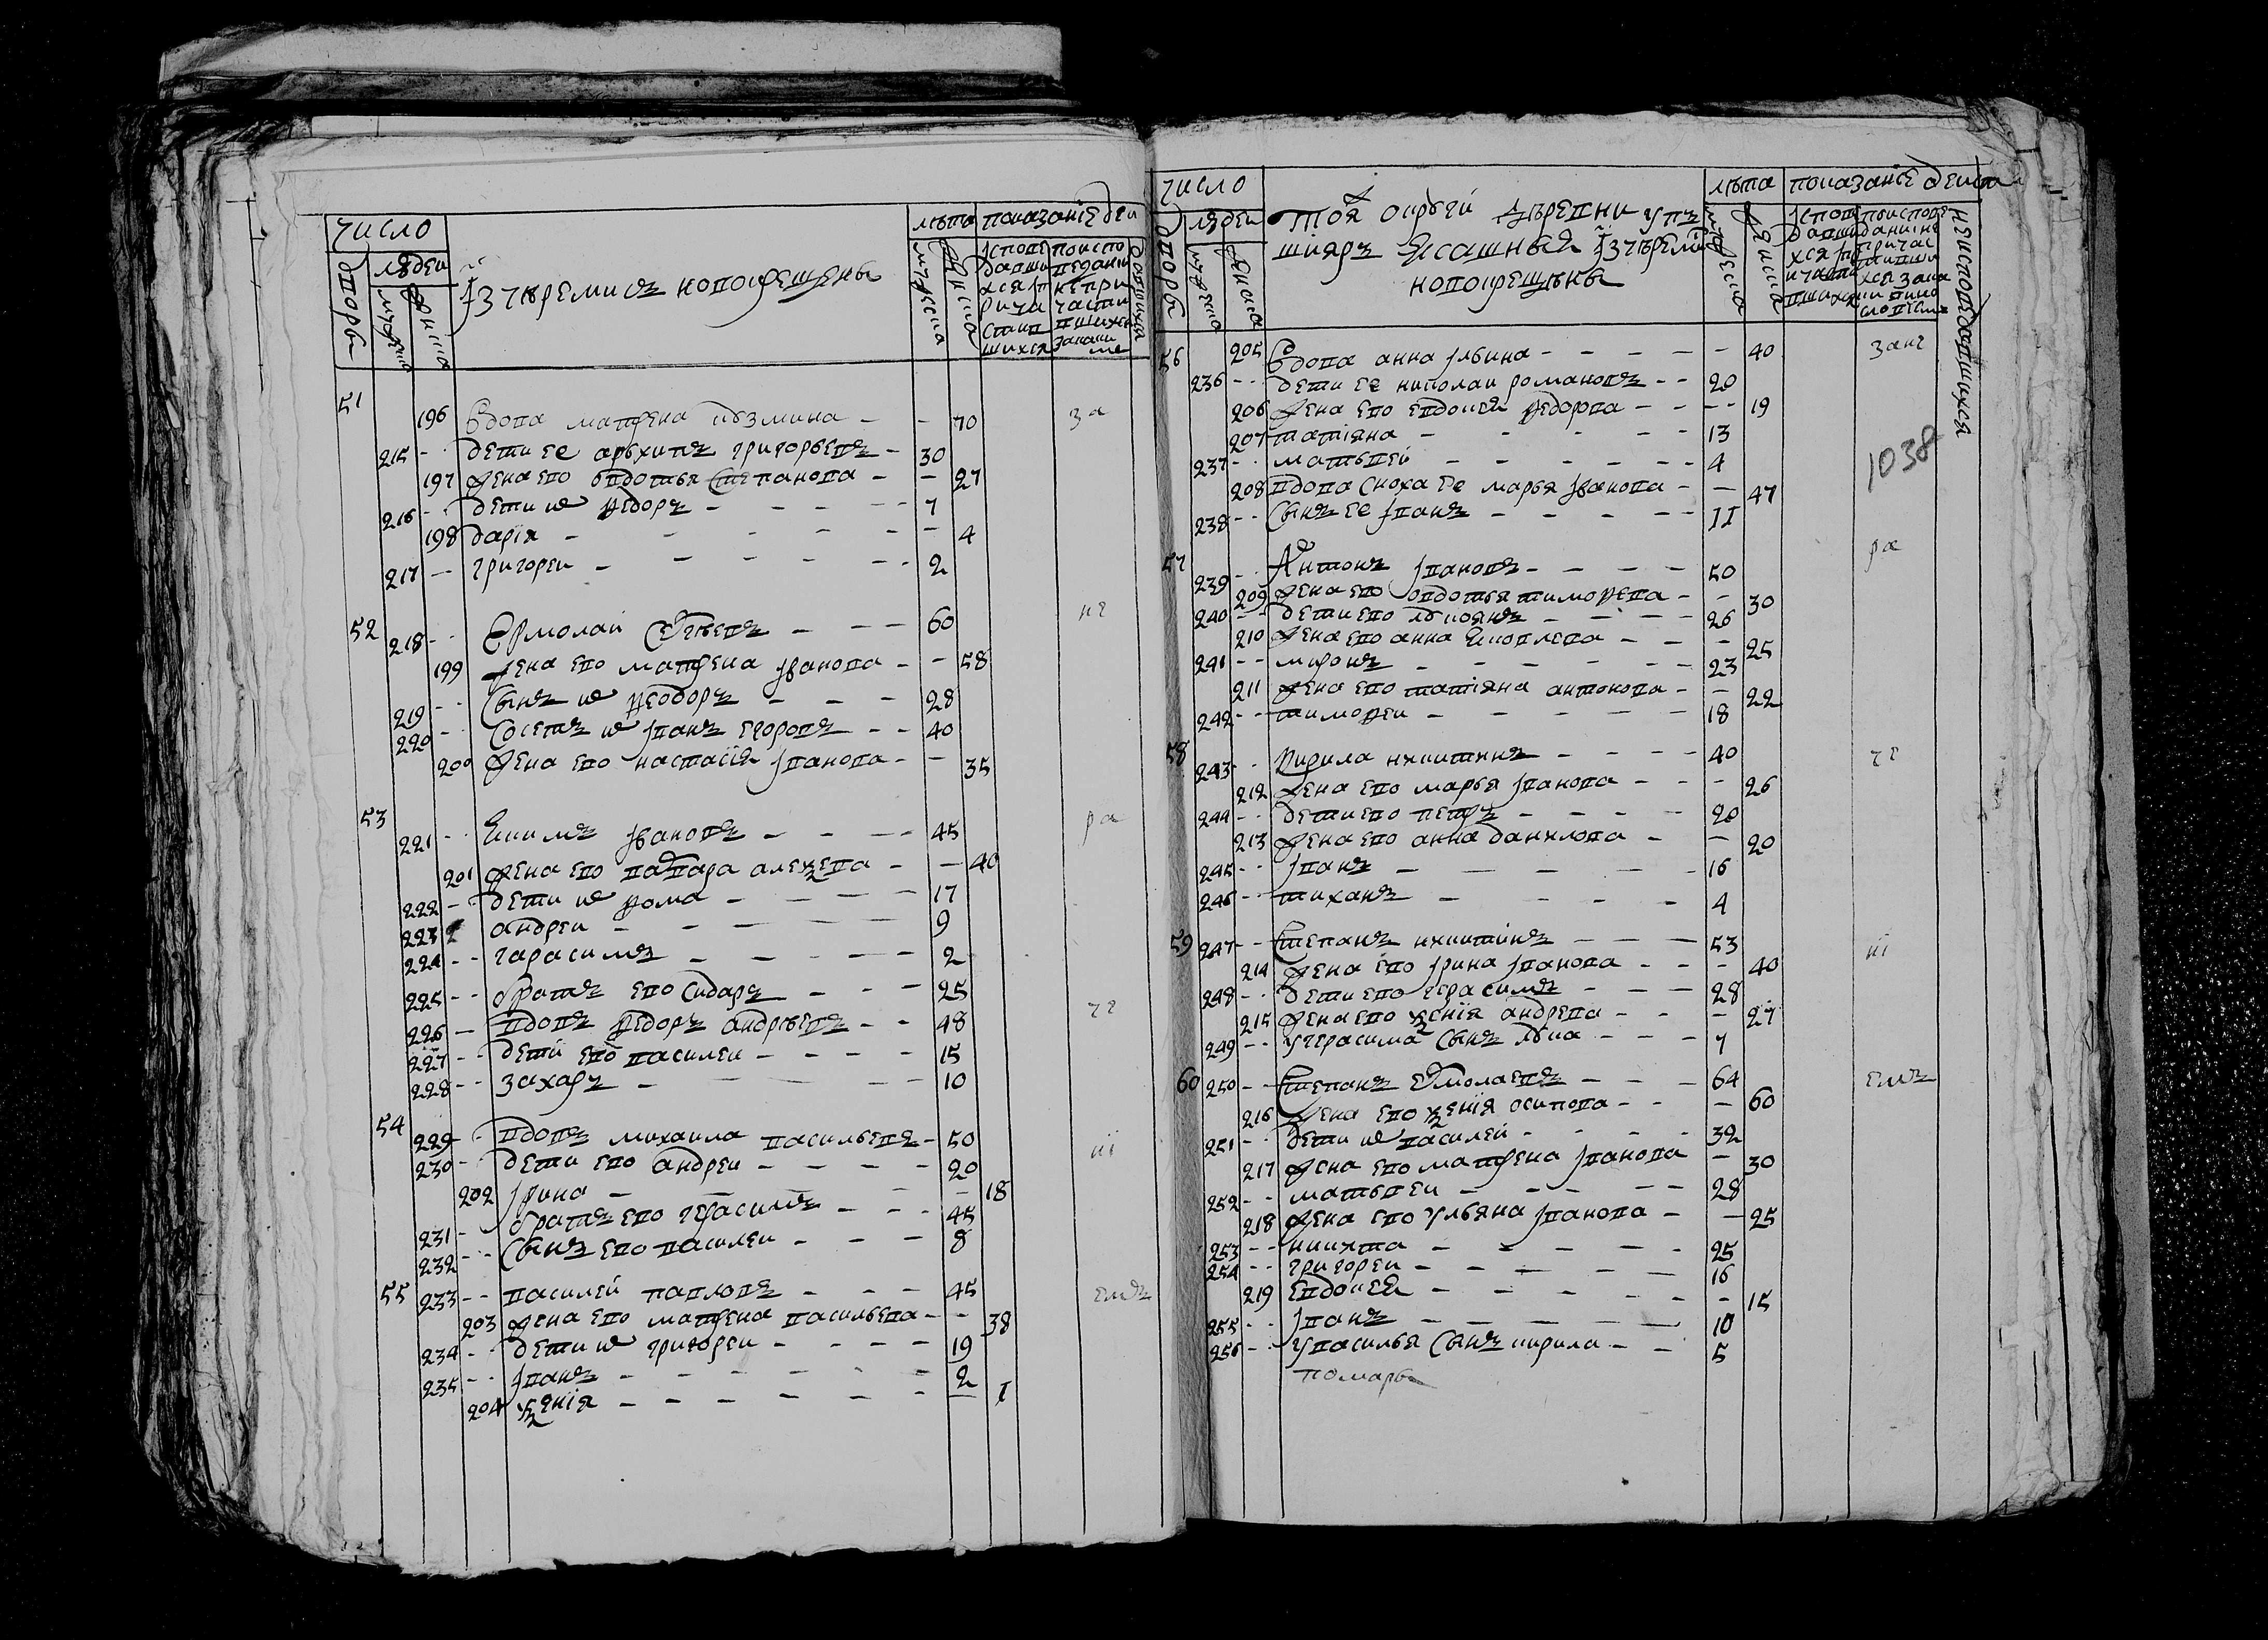 число
людеи
дворы
мужеска
женска
Iзчеремисъ новокрещены
лѣта
мужеска
женска
показанiе деи
Iсповедавшихся I причастившихся
по исповедании не причастившихся за каки ме
51
196 Вдова матрена козмина - - 70 за
215 - - дети ее архипъ григорьевъ - 30
197 жена ево овдотья степанова - - 27
216 - - дети их федоръ - - - 7
198 дарiя - - - - 4
217 - - григореи - - - - 2
52 не
218 - - Ермолаи Сергѣевъ - - - 60
199 жена ево матрена Iванова - - 58
219 - - Сынъ их феодоръ - - - 28
220 - - Соседъ их Iванъ егоровъ - - 40
200 жена ево настасiя Iванова - - 35
53 ра
221 - - Екимъ Iвановъ - - - 45
201 жена ево варвара алексеева - - 40
222 - - дети их фома - - - 17
223 андреи - - - 9
224 - - гарасимъ - - - - 2
225 - - братъ ево Сидаръ - - - 25
226 - вдовъ федоръ андреевъ - - 48 че
227 - - дети ево василеи - - - - 15
228 - - захаръ - - - - 10
54
229 - вдовъ михаила васильевъ - 50 нi
230 - - дети ево андреи - - - - 20
202 Iрина - - - - 18
231 - братъ ево герасимъ - - - 45
232 - - Сынъ ево василеи - - - 8
55 233 - - василеи павловъ - - - 45 емъ
203 жена ево матрена васильева - - 38
234 - - дети их григореи - - - - 19
235 - - Iванъ - - - - - 2
204 ксенiя - - - - - 1
число
людеи
дворы
мужеска
женска
Тоя округи деревни упъ
шияръ Ясашныя Iзчереми
новокрещены
лѣта
мужеска
женска
показанiе деиства
неисповедавшихся
56 205 Вдова анна Iлвина - - - - - 40 заня
236 - - дети ее николаи романовъ - - 20
206 жена ево евдокея федорова - - - 19
207 татiяна - - - - 13
237 - - матвѣеи - - - - - - 4
1038
208 вдова Сноха ее марья Iванова - - 47
238 - - Сынъ ее Iванъ - - - - - 11
57 ра
239 - - Антонъ Iвановъ - - - - 50
209 жена ево овдотья тимофева - - 30
240 - - дети ево лукоянъ - - - - 26
210 жена ево анна яковлева - - - 25
241 - - миронъ - - - - - - 23
211 жена ево татiяна антонова - - 22
242 - - тимофеи - - - - - 18
58 243 - - Кирила никитинъ - - - - 40 че
212 жена ево марья Iванова - - - 26
244 - - дети ево петръ - - - - 20
213 жена ево анна данилова - - 20
245 - - Iванъ - - - - - 16
246 - - тиханъ - - - - 4
59 247 - - Степанъ никитинъ - - - 53 нi
214 жена ево Iрина Iванова - - - 40
248 - - дети ево герасимъ - - - 28
215 жена ево ксенiя андрева - - - 27
249 - - у герасима Сынъ лука - - - 7
60 250 - - Степанъ Ермолаевъ - - - 64 емъ
216 жена ево ксенiя осипова - - - 60
251 - - дети их василеи - - - - 32
217 жена ево матрена Iванова - 30
252 - - матвѣеи - - - - - 28
218 жена ево ульяна Iванова - - 25
253 - - никита - - - - - 25
254 - - григореи - - - - - 16
219 евдокея - - - - - - 15
255 - - Iванъ - - - - - - 10
256 - - у василья Сынъ кирила - - 5